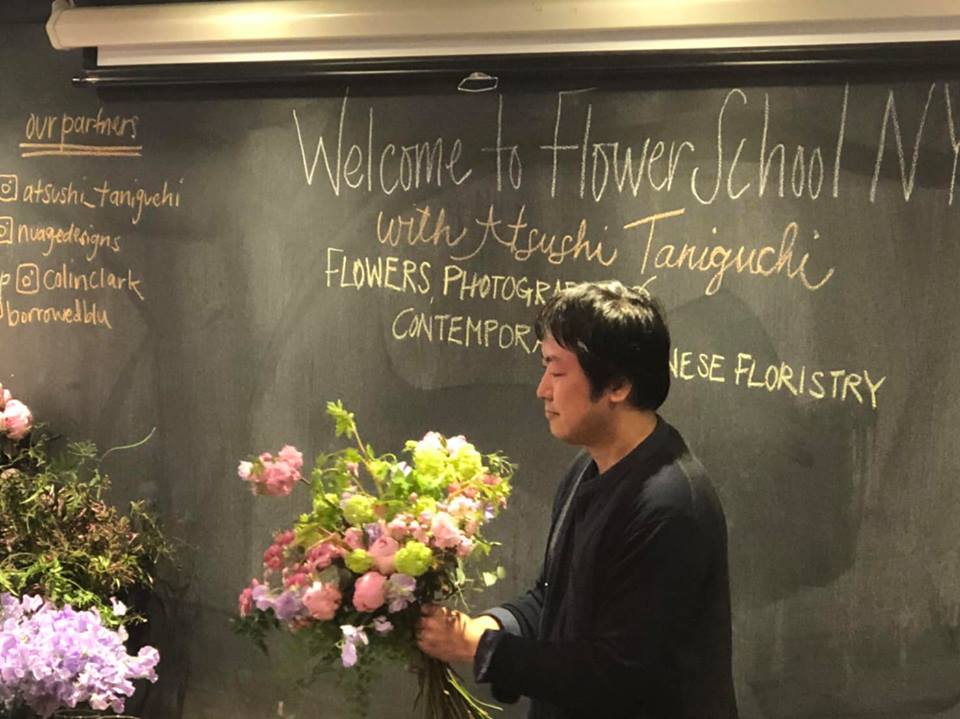 our partners
atsushi_taniguchi
nuagedesigns
colinclark
borrowedblu
Welcome to FlowerSchool NY
with Atsushi Taniguchi
FLOWERS, PHOTOGRA
CONTEMPORA
NESE FLORISTRY